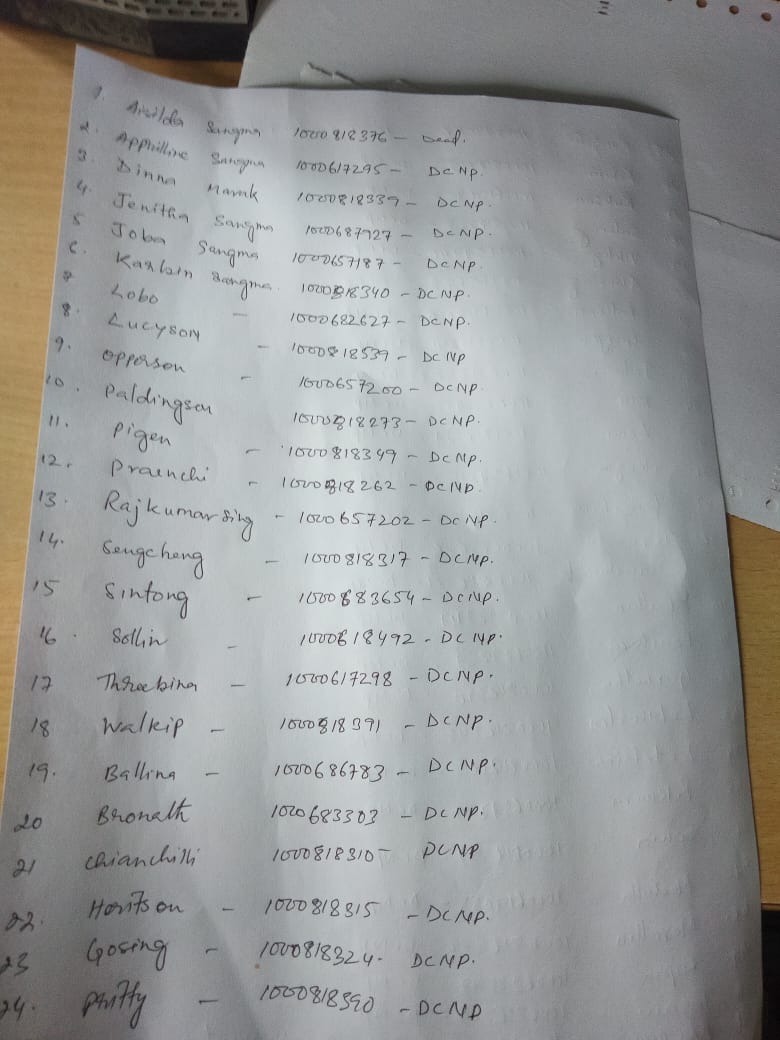 1. Arsilda Sangma 1000818376 - Dead.
2. Apphilline Sangma 1000617295 - DCNP.
3. Dinna Marak 1000818339 - DCNP.
4. Jenitha Sangma 1000687927 - DCNP.
5 Joba Sangma 1000657187 - DCNP.
6. Karlan Sangma. 1000818340 - DCNP.
7 Lobo - 1000682627 - DCNP.
8. Lucyson - 1000818539 - DCNP
9. Opperson - 1000657200 - DCNP.
10. Paldingsen 1000818273 - DCNP.
11. Pigen - 1000818349 - DCNP.
12. Praenchi - 1000818262 - DCNP.
13. Rajkumarsing - 1000657202 - DCNP.
14. Sengcheng - 1000818317 - DCNP.
15 Sintong - 1000683654 - DCNP.
16. Sollin - 1000618492 - DCNP.
17 Threebina - 1000617298 - DCNP.
18 Walkip - 1000818391 - DCNP.
19. Ballina - 1000686783 - DCNP.
20 Bronath 100683303 - DCNP.
21 Chianchilli 1000818310 - DCNP
22. Horitson - 1000818315 - DCNP.
23 Gosing - 1000818324. DCNP.
24. Phitty - 1000818390 - DCNP